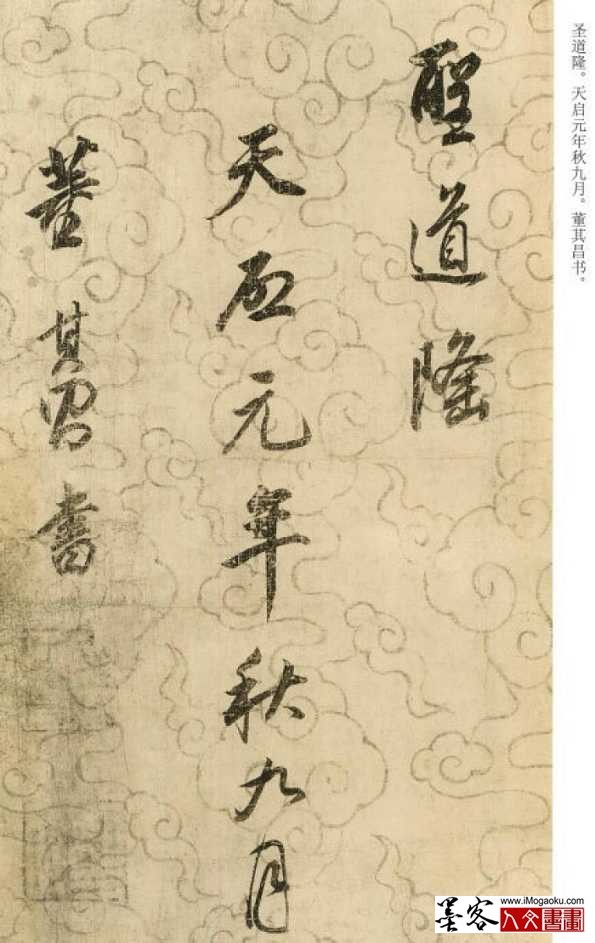 聖道隆
天启元年秋九月
董其昌書
圣道隆。天启元年秋九月。董其昌书。
www.iMogaoku.com
墨客
人文書畫